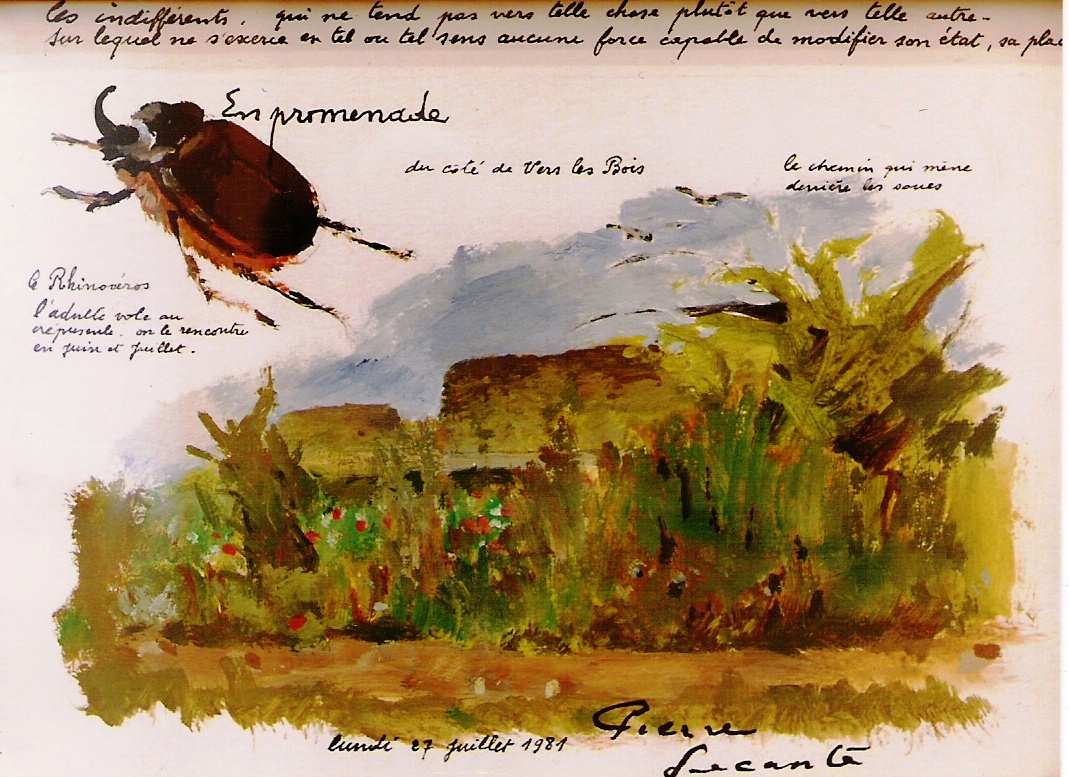 les indifférents. qui ne tend pas vers telle chose plutôt que vers telle autre-
sur lequel ne s'exerce en tel ou tel sens aucune force capable de modifier son état, sa plac
En promenade
du côté de Vers les Bois
le chemin qui mène
derrière les soues
le Rhinocéros
l'adulte vole au
crépuscule. on le rencontre
en juin et juillet.
lundi 27 juillet 1981
Pierre
Lecante